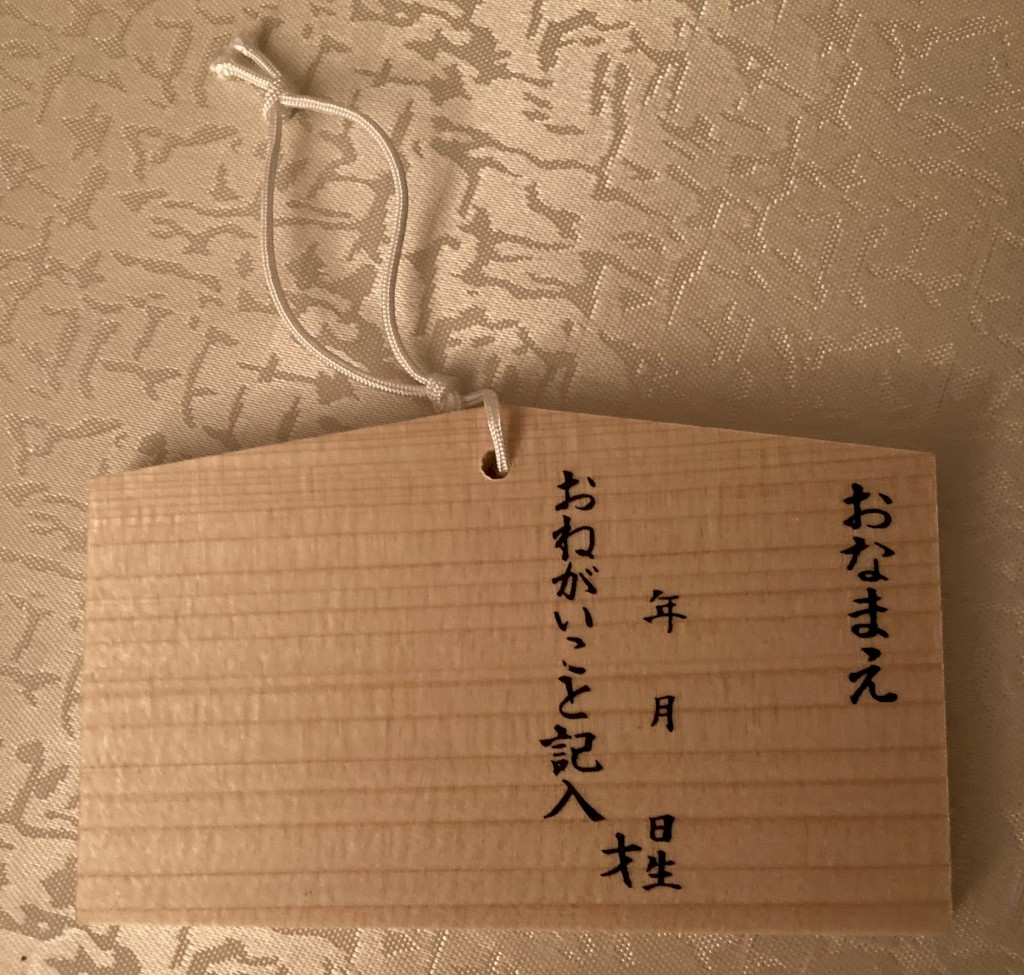 おなまえ
年 月 日生
才
おねがいこと記入